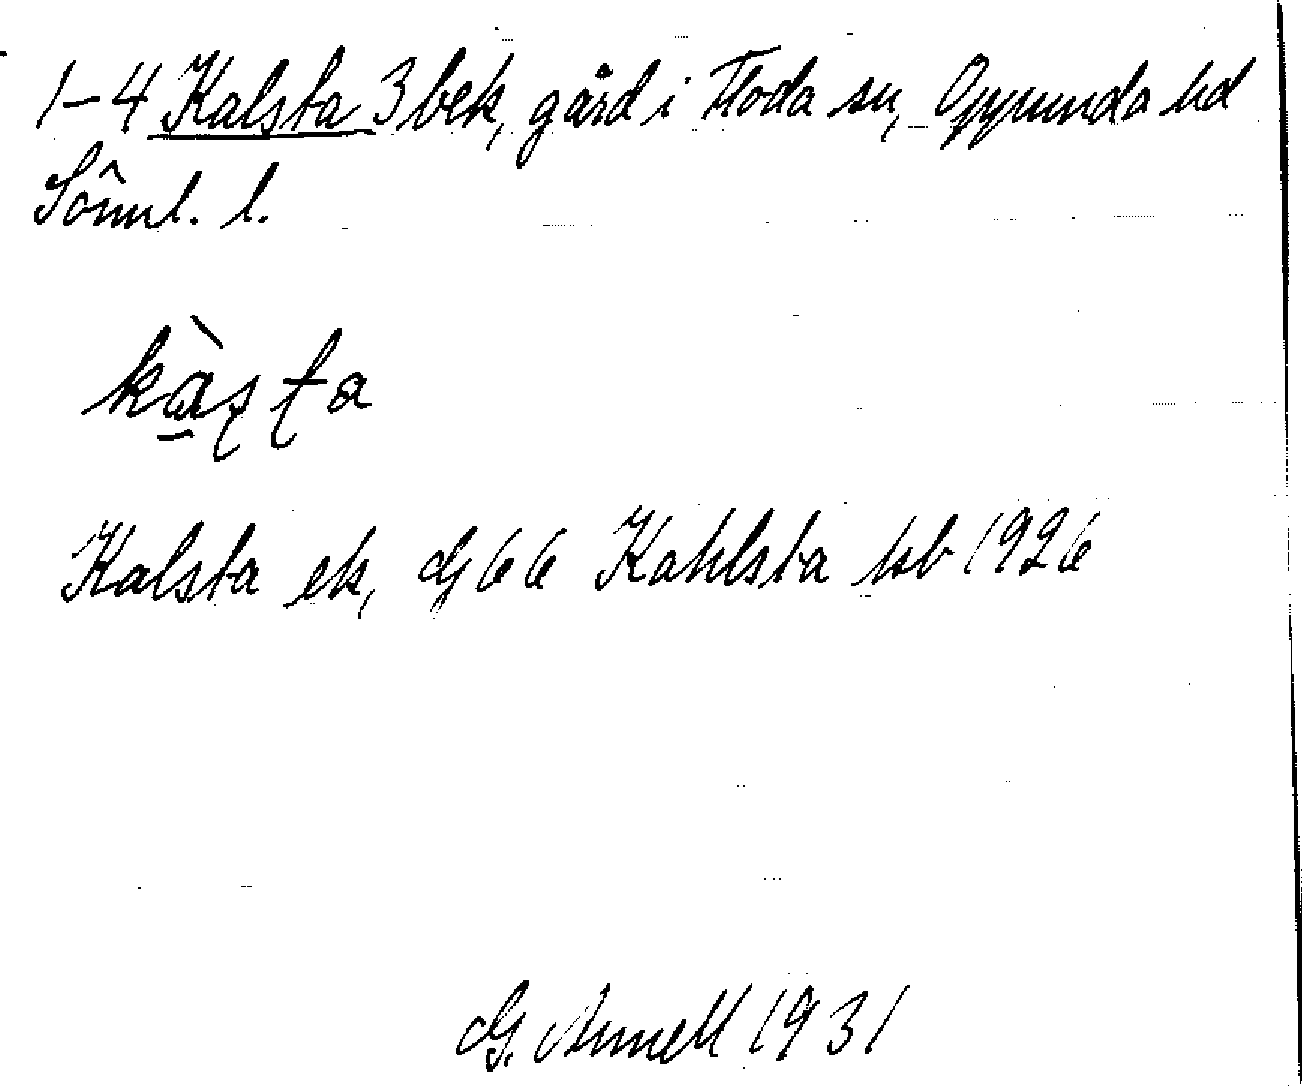 1-4 Kalsta 3 bek, gård i Floda sn, Oppunda hd
Sörml. l.
kà̱ʂʈa
Kalsta ek, G 66 Kahlsta hsb 1926
G. Armell 1931